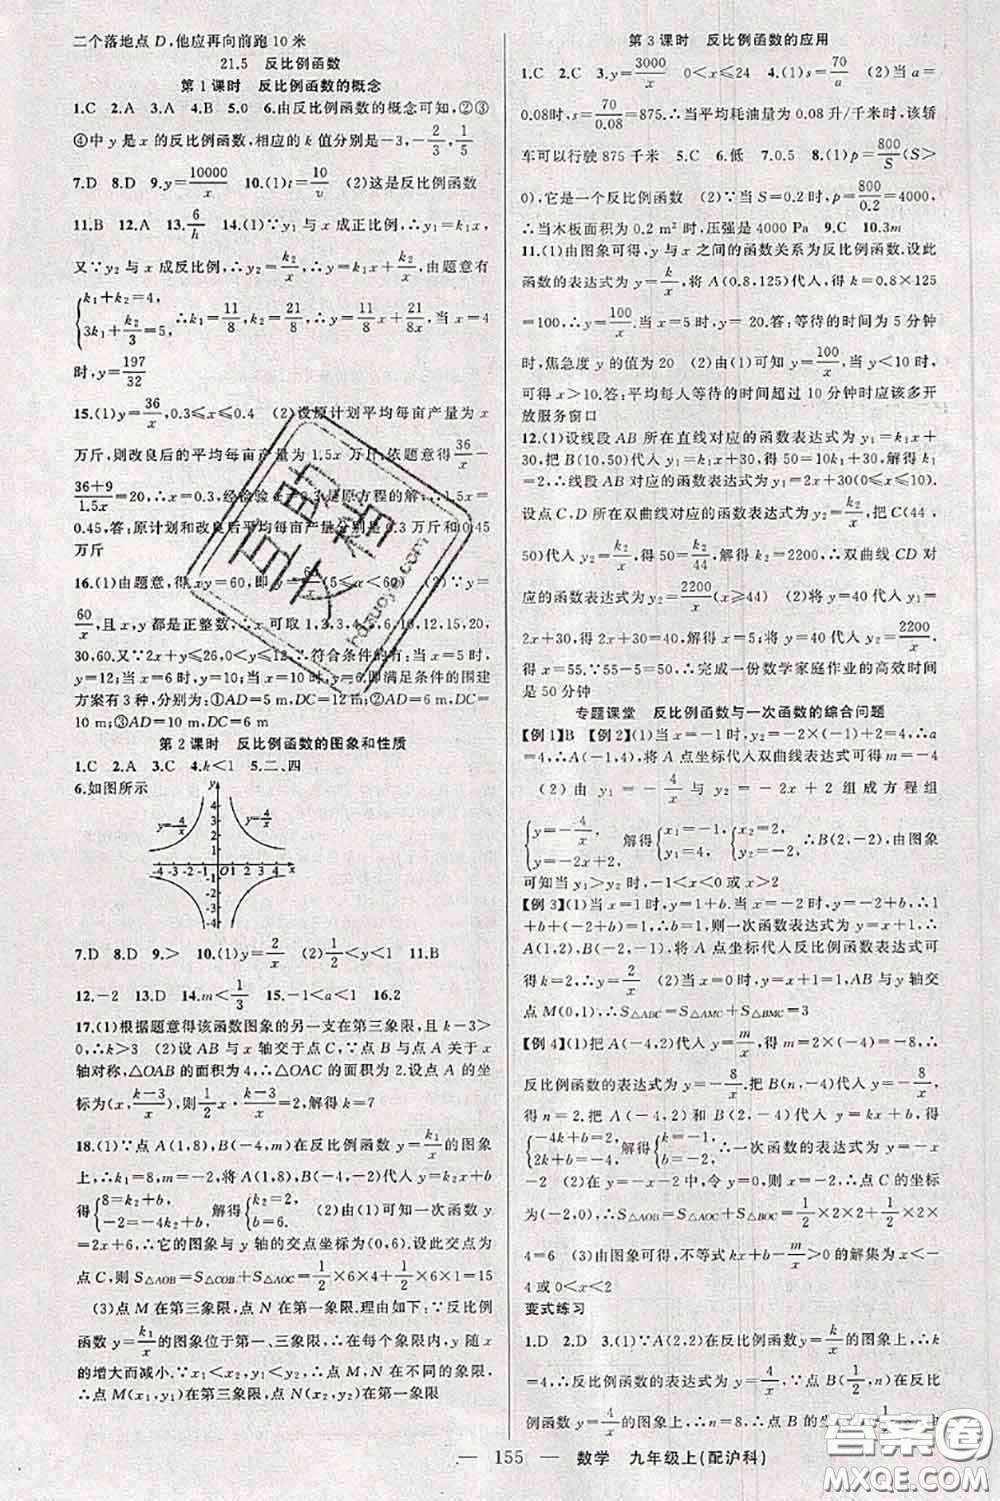 二个落地点 D,他应再向前跑 10 米
21.5 反比例函数
第 1 课时 反比例函数的概念
1.C 2.A 3.A 4.B 5.0 6.由反比例函数的概念可知,②③
④中 y 是 x 的反比例函数,相应的 k 值分别是 -3,-2/3,1/5
7.D 8.D 9.y=10000/x 10.(1)t=10/v (2)这是反比例函数
11.B 12.A 13.6/h 14.(1)∵y₁ 与 x 成正比例,∴y₁=k₁x,
又∵y₂ 与 x 成反比例,∴y₂=k₂/x,∴y=k₁x+k₂/x,由题意有
{k₁+k₂=4, 3k₁+k₂/3=5, ∴k₁=11/8,k₂=21/8,∴y=11/8x+21/8x,当 x=4
时,y=197/32
15.(1)y=36/x,0.3≤x≤0.4 (2)设原计划平均每亩产量为 x
万斤,则改良后的平均每亩产量为 1.5x 万斤,依题意得36/x-
36+9/1.5x=20,∴x=0.3,经检验 x=0.3 是原方程的解,∴1.5x=
0.45,答:原计划和改良后平均每亩产量分别是 0.3 万斤和 0.45
万斤
16.(1)由题意,得 xy=60,即 y=60/x(5≤x<60) (2)∵y=
60/x,且 x,y 都是正整数,∴x 可取 1,3,4,5,6,10,12,15,20,
30,60.又∵2x+y≤26,0<y≤12,∴符合条件的有:当 x=5 时,
y=12;当 x=6 时,y=10;当 x=10 时,y=6.即满足条件的围建
方案有 3 种,分别为:①AD=5 m,DC=12 m;②AD=6 m,DC=
10 m;③AD=10 m,DC=6 m
第 2 课时 反比例函数的图象和性质
1.C 2.A 3.C 4.k<1 5.二、四
6.如图所示
y
y=-4/x y=4/x
4
3
2
1
-4 -3 -2 -1 O 1 2 3 4 x
-1
-2
-3
-4
7.D 8.D 9.> 10.(1)y=2/x (2)1/2<y<1 11.B
12.-2 13.D 14.m<1/3 15.-1<a<1 16.2
17.(1)根据题意得该函数图象的另一支在第三象限,且 k-3>
0,∴k>3 (2)设 AB 与 x 轴交于点 C,∵点 B 与点 A 关于 x
轴对称,△OAB 的面积为 4,∴△OAC 的面积为 2.设点 A 的坐
标为(x,k-3/x),则1/2x·k-3/x=2,解得 k=7
18.(1)∵点 A(1,8),B(-4,m)在反比例函数 y=k₁/x的图象
上,∴k₁=8,m=-2,将 A(1,8),B(-4,-2)代入 y=k₂x+b
得{8=k₂+b, -2=-4k₂+b, 解得{k₂=2, b=6. (2)由(1)可知一次函数 y
=2x+6,∴它的图象与 y 轴的交点坐标为(0,6),设此交点为
点 C,则 S△AOB=S△COB+S△AOC=1/2×6×4+1/2×6×1=15
(3)点 M 在第三象限,点 N 在第一象限.理由如下:∵反比例
函数 y=k₁/x的图象位于第一、三象限,∴在每个象限内,y 随 x
的增大而减小,∵x₁<x₂,y₁<y₂,∴点 M,N 在不同的象限,∴
点 M(x₁,y₁)在第三象限,点 N(x₂,y₂)在第一象限
第 3 课时 反比例函数的应用
1.C 2.C 3.y=3000/x 0<x≤24 4.(1)s=70/a (2)当 a=
0.08时,s=70/0.08=875.∴当平均耗油量为 0.08 升/千米时,该轿
车可以行驶 875 千米 5.C 6.低 7.0.5 8.(1)p=800/S(S>
0),它是一个反比例函数 (2)∵当 S=0.2 时,p=800/0.2=4000,
∴当木板面积为 0.2 m² 时,压强是 4000 Pa 9.C 10.3m
11.(1)由图象可得,y 与 x 之间的函数关系为反比例函数.设此
函数的表达式为 y=k/x,将 A(0.8,125)代入,得 k=0.8×125
=100,∴y=100/x.当 x=5 时,y=20.答:等待的时间为 5 分钟
时,焦急度 y 的值为 20 (2)由(1)可知 y=100/x,当 y<10 时,
可得 x>10.答:平均每人等待的时间超过 10 分钟时应该多开
放服务窗口
12.(1)设线段 AB 所在直线对应的函数表达式为 y₁=k₁x+
30,把 B(10,50)代入 y₁=k₁x+30,得 50=10k₁+30,解得 k₁
=2,∴线段 AB 对应的函数表达式为 y₁=2x+30(0≤x≤10).
设点 C,D 所在双曲线对应的函数表达式为 y₂=k₂/x,把 C(44,
50)代入 y₂=k₂/x,得 50=k₂/44,解得 k₂=2200,∴双曲线 CD 对
应的函数表达式为 y₂=2200/x(x≥44) (2)将 y=40 代入 y₁=
2x+30,得 2x+30=40,解得 x=5,将 y=40 代入 y₂=2200/x,
得 x=55.∵55-5=50,∴完成一份数学家庭作业的高效时间
是 50 分钟
专题课堂 反比例函数与一次函数的综合问题
【例 1】B 【例 2】(1)当 x=-1 时,y₂=-2×(-1)+2=4,∴a
=4,∴A(-1,4),将 A 点坐标代入双曲线表达式可得 m=-4
(2)由 y₁=-4/x 与 y₂=-2x+2 组成方程组
{y=-4/x, y=-2x+2, 解得{x₁=-1, y₁=4, {x₂=2, y₂=-2, ∴B(2,-2),由图象
可知当 y₁>y₂ 时,-1<x<0 或 x>2
【例 3】(1)当 x=1 时,y=1+b.当 x=-2 时,y=-2+b,∴
1+b+(-2+b)=1,∴b=1,∴一次函数表达式为 y=x+1,∴
A(1,2),B(-2,-1),将 A 点坐标代入反比例函数表达式可
得 k=2,∴y=2/x (2)当 y=-1 时,x=-2,设 AB 与 y 轴交
点 M(0,1),∴S△ABC=S△AMC+S△BMC=3
【例 4】(1)把 A(-4,2)代入 y=m/x,得 m=2×(-4)=-8,∴
反比例函数的表达式为 y=-8/x.把 B(n,-4)代入 y=-8/x,
得 n=2.把 A(-4,2)和 B(2,-4)代入 y=kx+b,得
{-4k+b=2, 2k+b=-4, 解得{k=-1, b=-2, ∴一次函数的表达式为 y=-x
-2 (2)在 y=-x-2 中,当 y=0 时,x=-2,∴点 C 的坐标
为(-2,0),∴S△AOB=S△AOC+S△BOC=1/2×2×2+1/2×2×
4=6 (3)由图象可得,不等式 kx+b-m/x>0 的解集为 x<-
4 或 0<x<2
变式练习
1.D 2.D 3.(1)∵A(2,2)在反比例函数 y=k/x的图象上,∴k
=4,∴反比例函数的表达式为 y=4/x,又∵点 B(1/2,n)在反比
例函数 y=4/x的图象上,∴n=8,∴点 B 的坐
— 155 — 数学 九年级上(配沪科)
答案圈
MXQE.COM